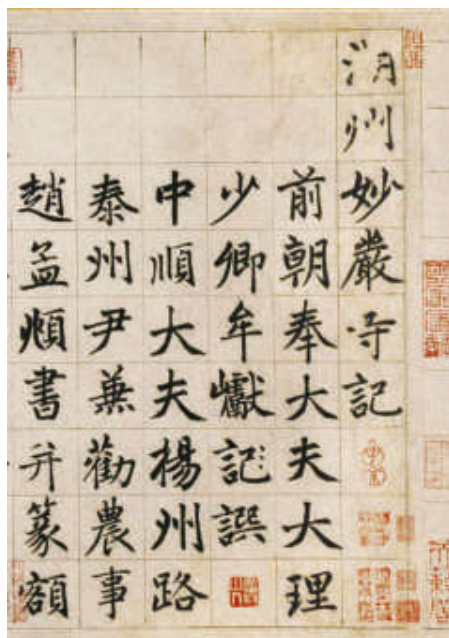 湖州妙嚴寺記
前朝奉大夫大理
少卿牟巘記譔
中順大夫楊州路
泰州尹兼勸農事
趙孟頫書并篆額